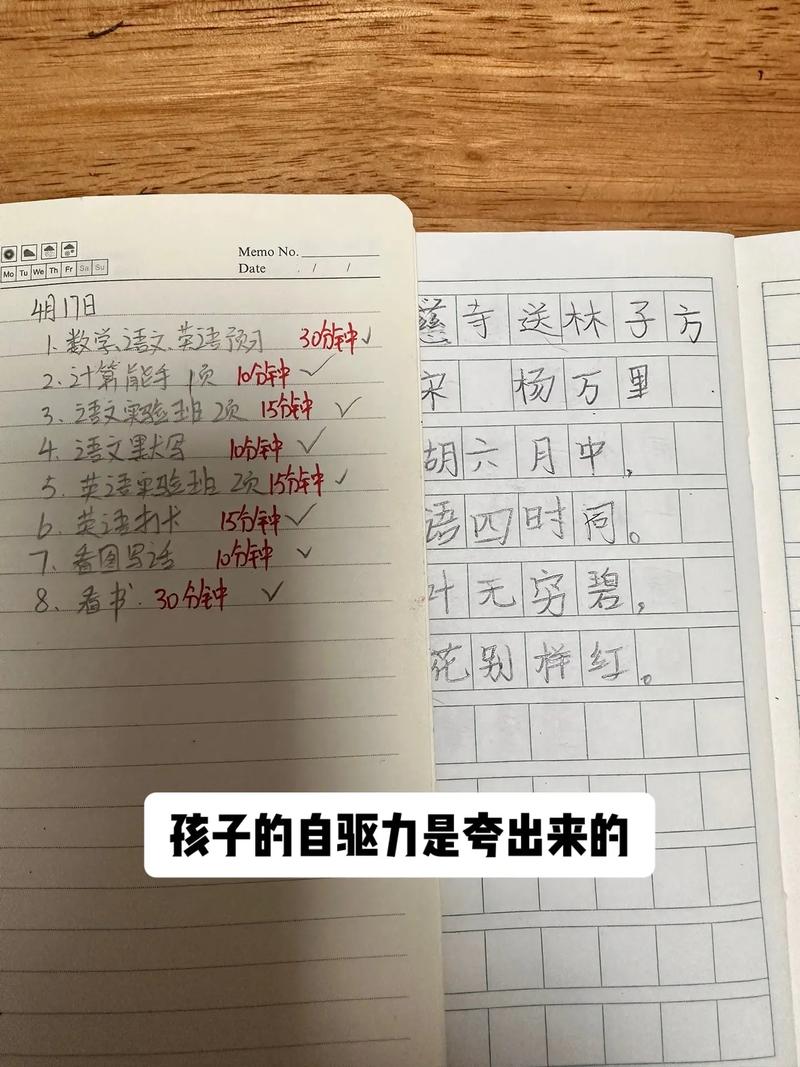 Memo No.
Date / /
Mo Tu We Th Fr Sa Su
4月17日
1. 数学、语文、英语预习 30分钟✓
2. 计算能手 1页 10分钟✓
3. 语文实验班 2页 15分钟✓
4. 语文默写 10分钟✓
5. 英语实验班 2页 15分钟✓
6. 英语打卡 15分钟✓
7. 看图写话 10分钟✓
8. 看书. 30分钟✓
慈寺送林子方
宋 杨万里
胡六月中,
语四时同。
叶无穷碧,
花别样红。
孩子的自驱力是夸出来的